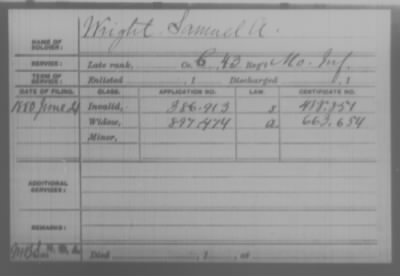 Wright Samuel A.
NAME OF SOLDIER:
SERVICE: Late rank, Co. C, 43 Reg't Mo. Inf.
TERM OF SERVICE: Enlisted , 1 Discharged , 1
DATE OF FILING. CLASS. APPLICATION NO. LAW. CERTIFICATE NO.
1880 June Invalid, 386.913 418.851
Widow, 897.474 a 663.654
Minor,
ADDITIONAL SERVICES:
REMARKS:
Died , 1 , at